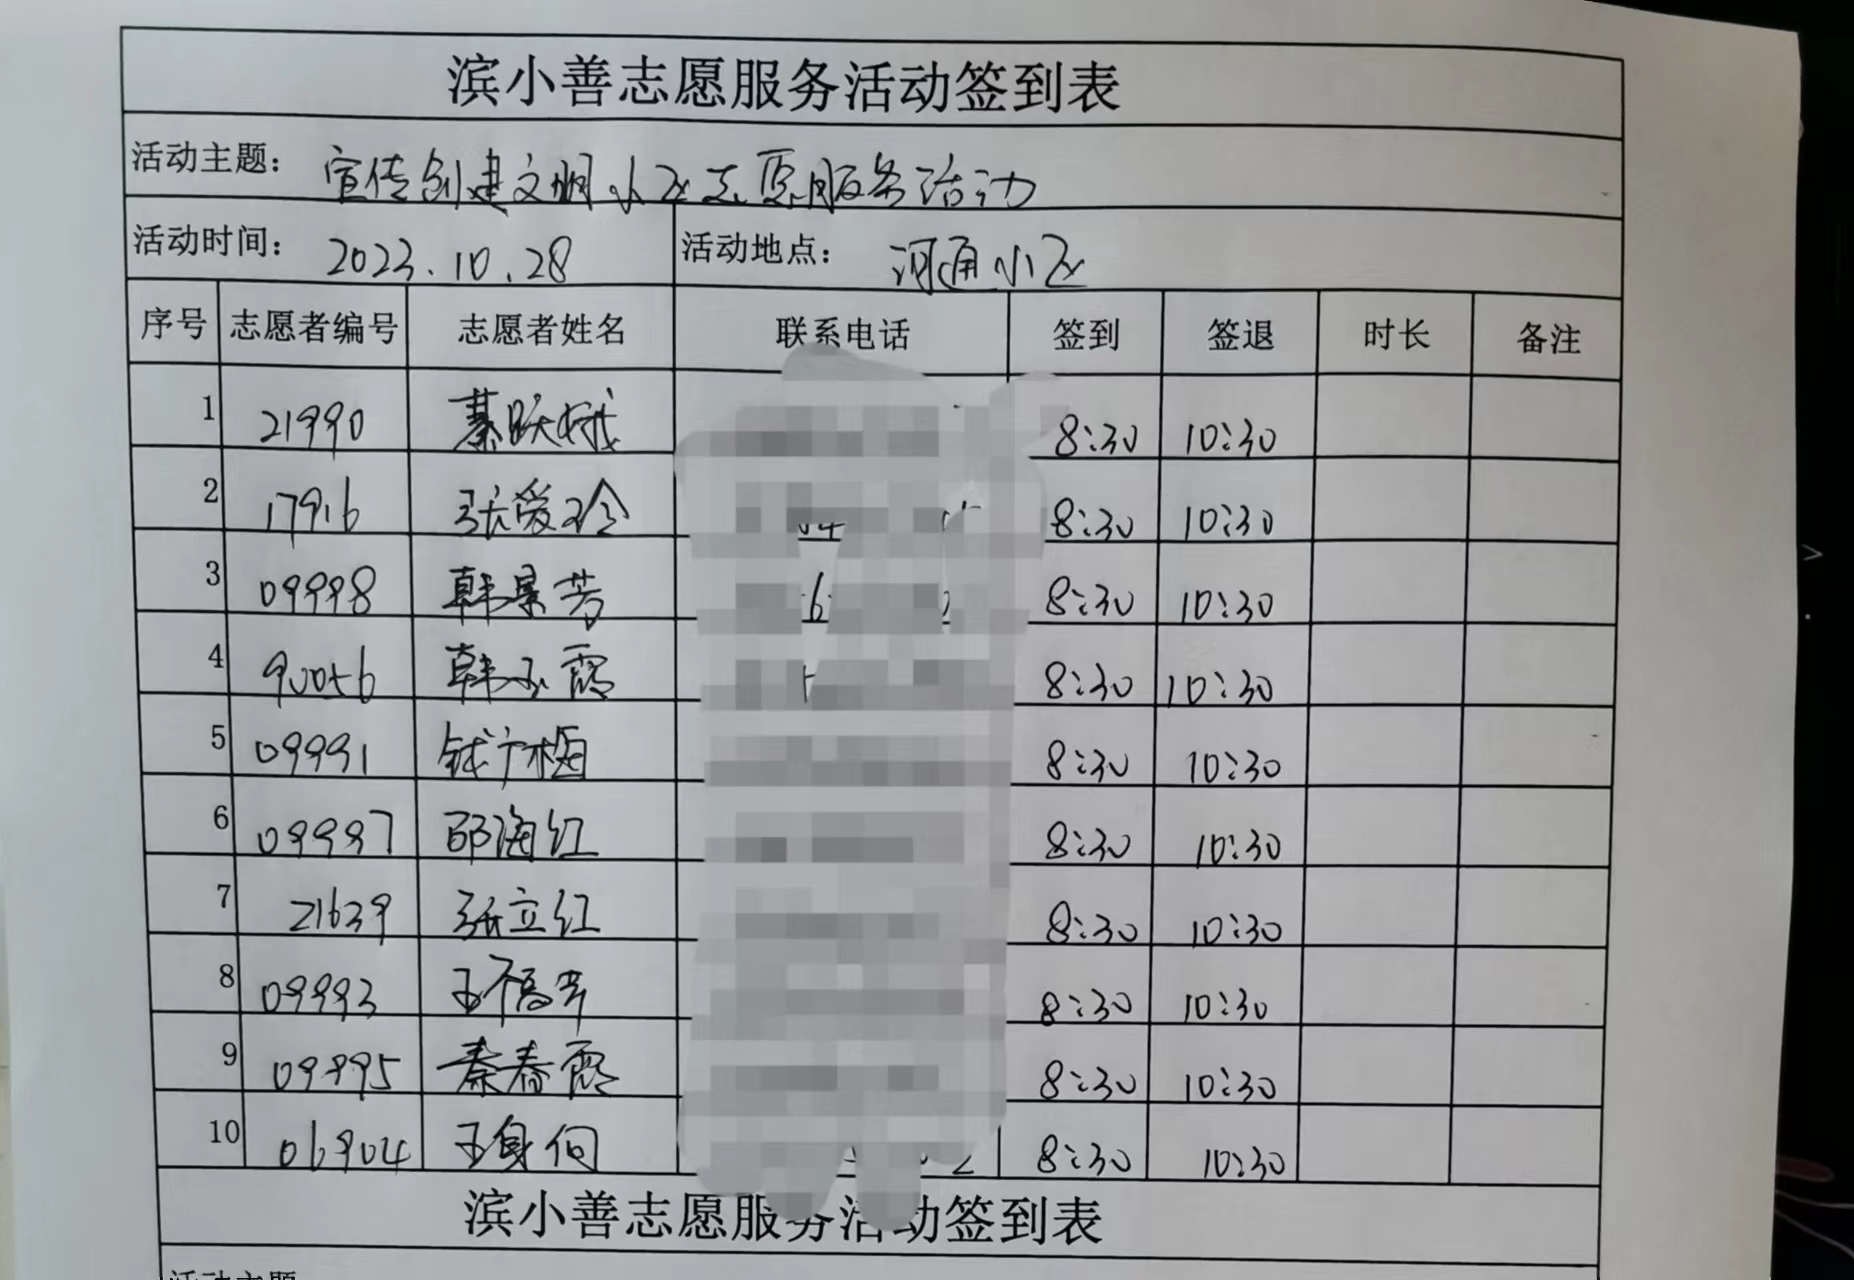 滨小善志愿服务活动签到表
活动主题： 宣传创建文明小区志愿服务活动
活动时间： 2023.10.28 活动地点： 河通小区
序号 志愿者编号 志愿者姓名 联系电话 签到 签退 时长 备注
1 21990 8:30 10:30
2 17916 张爱玲 8:30 10:30
3 09998 韩景芳 8:30 10:30
4 90056 韩玉霞 8:30 10:30
5 09991 钱广梅 8:30 10:30
6 09997 邵海红 8:30 10:30
7 21639 张立红 8:30 10:30
8 09993 8:30 10:30
9 09995 秦春霞 8:30 10:30
10 06904 8:30 10:30
滨小善志愿服务活动签到表
活动主题